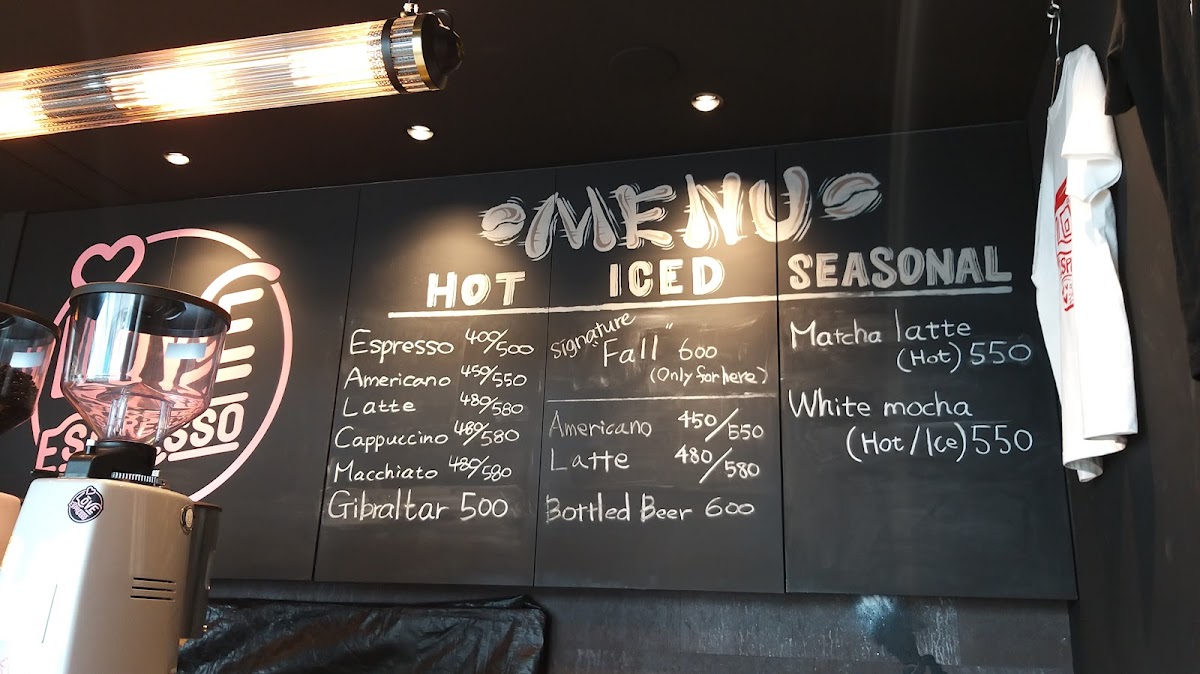 MENU
HOT
Espresso 400/500
Americano 450/550
Latte 480/580
Cappuccino 480/580
Macchiato 480/580
Gibraltar 500
ICED
Signature
"Fall" 600
(Only for here)
Americano 450/550
Latte 480/580
Bottled Beer 600
SEASONAL
Matcha latte
(Hot) 550
White mocha
(Hot/Ice) 550
ESPRESSO
LOVE